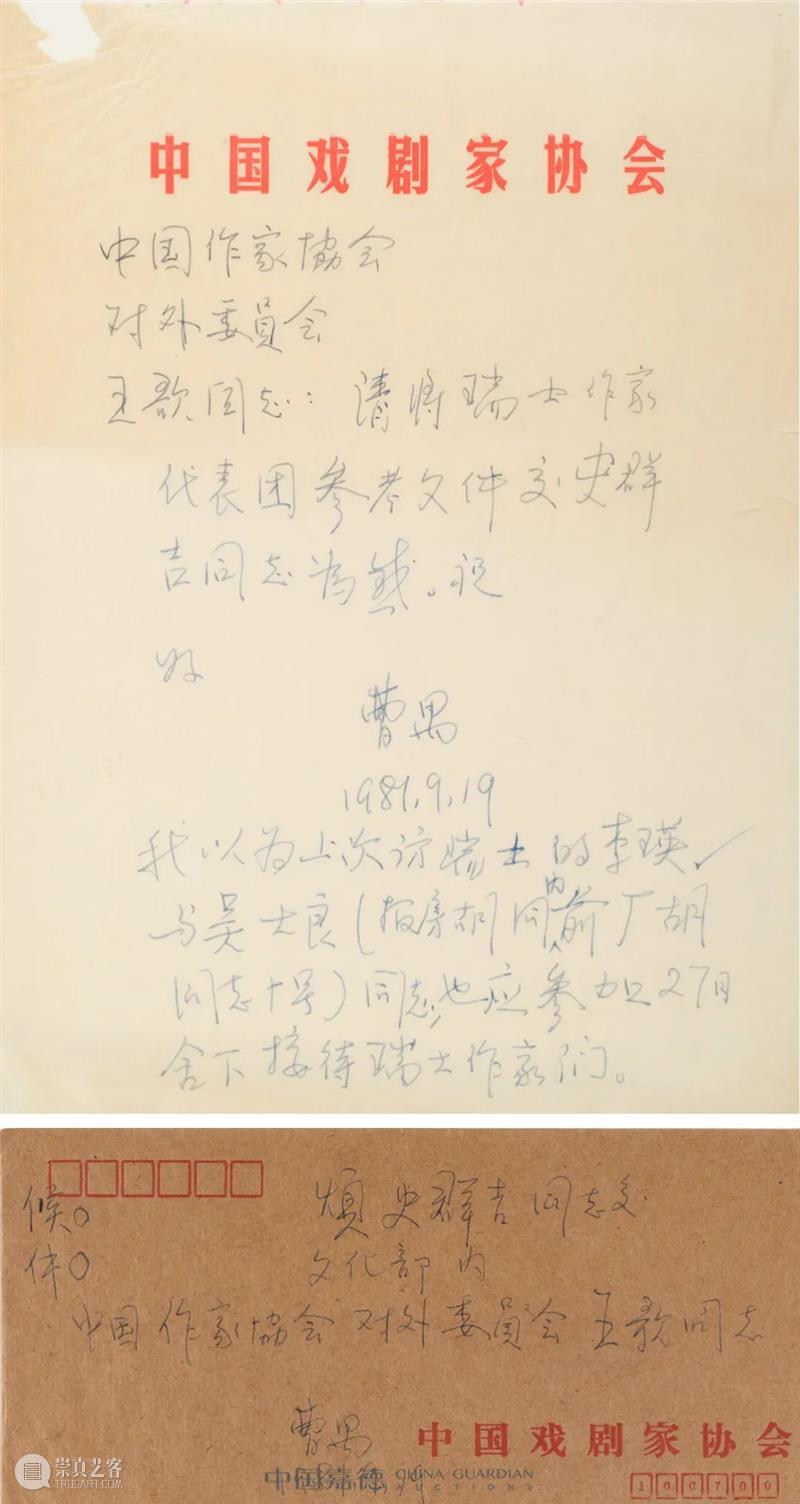 中国戏剧家协会
中国作家協会
对外委員会
王歌同志：请将瑞士作家
代表团参考文件交史群
吉同志为感。祝
好
曹禺
1981.9.19
我以为上次访瑞士的李瑛
与吴士良（报房胡同内前厂胡
同志十号）同志，也应参加27日
舍下接待瑞士作家们。
候
休
煩史群吉同志交
文化部内
中国作家協会对外委員会王歌同志
曹禺
中国戏剧家协会
中国嘉德 CHINA GUARDIAN
AUCTIONS
100700
崇真艺客